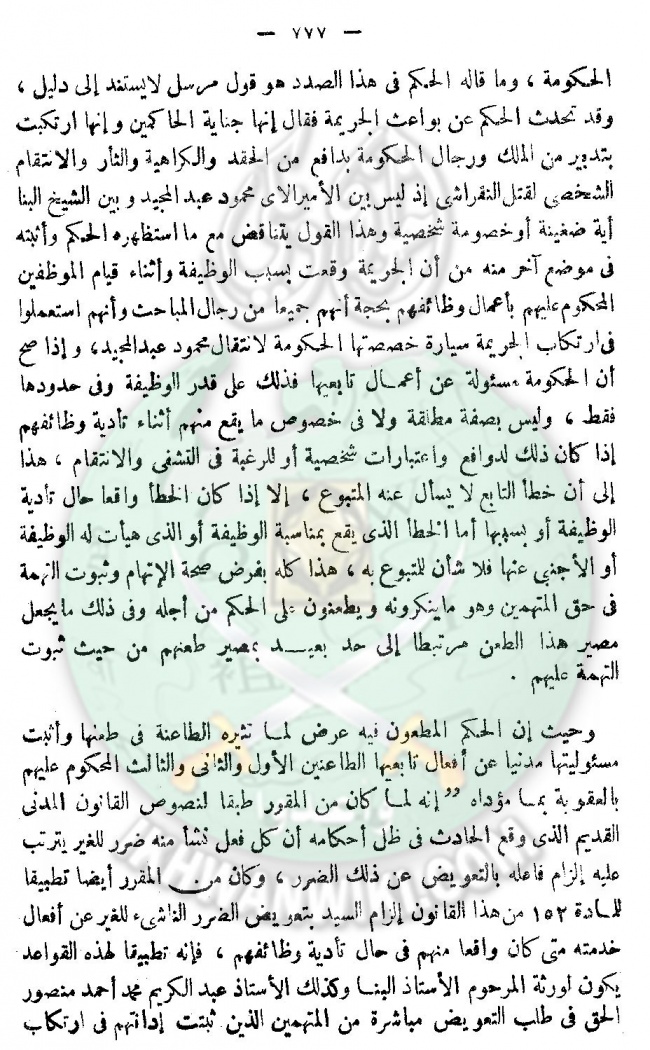 — ٧٧٧ —
الحكومة ، وما قاله الحكم فى هذا الصدد هو قول مرسل لا يستند إلى دليل ،
وقد تحدث الحكم عن بواعث الجريمة فقال إنها جناية الحاكمين وإنها ارتكبت
بتدبير من المالك ورجال الحكومة بدافع من الحقد والكراهية والثأر والانتقام
الشخصى لقتل النقراشى إذ ليس بين الأميرالاى محمود عبد المجيد وبين الشيخ البنا
أية ضغينة أو خصومة شخصية وهذا القول يتناقض مع ما استظهره الحكم وأثبته
فى موضع آخر منه من أن الجريمة وقعت بسبب الوظيفة وأثناء قيام الموظفين
المحكوم عليهم بأعمال وظائفهم بحجة أنهم جميعا من رجال المباحث وأنهم استعملوا
فى ارتكاب الجريمة سيارة خصصتها الحكومة لانتقال محمود عبد المجيد، وإذا صح
أن الحكومة مسئولة عن أعمال تابعيها فذلك على قدر الوظيفة وفى حدودها
فقط ، وليس بصفة مطلقة ولا فى خصوص ما يقع منهم أثناء تأدية وظائفهم
إذا كان ذلك لدوافع واعتبارات شخصية أو للرغبة فى التشفى والانتقام ، هذا
إلى أن خطأ التابع لا يسأل عنه المتبوع ، إلا إذا كان الخطأ واقعا حال تأدية
الوظيفة أو بسببها أما الخطأ الذى يقع بمناسبة الوظيفة أو الذى هيأت له الوظيفة
أو الأجنبى عنها فلا شأن للمتبوع به ، هذا كله بفرض صحة الإتهام وثبوت التهمة
فى حق المتهمين وهو ما ينكرونه ويطعنون على الحكم من أجله وفى ذلك ما يجعل
مصير هذا الطعن مرتبطا إلى حد بعيد بمصير طعنهم من حيث ثبوت
التهمة عليهم .
وحيث إن الحكم المطعون فيه عرض لما تثيره الطاعنة فى طعنها وأثبت
مسئوليتها مدنيا عن أفعال تابعيها الطاعنين الأول والثانى والثالث المحكوم عليهم
بالعقوبة بما مؤداه "إنه لما كان من المقرر طبقا لنصوص القانون المدنى
القديم الذى وقع الحادث فى ظل أحكامه أن كل فعل نشأ منه ضرر للغير يترتب
عليه إلزام فاعله بالتعويض عن ذلك الضرر ، وكان من المقرر أيضا تطبيقا
للمادة ١٥٢ من هذا القانون إلزام السيد بتعويض الضرر الناشىء للغير عن أفعال
خدمته متى كان واقعا منهم فى حال تأدية وظائفهم ، فإنه تطبيقا لهذه القواعد
يكون لورثة المرحوم الأستاذ البنا وكذلك الأستاذ عبد الكريم محمد أحمد منصور
الحق فى طلب التعويض مباشرة من المتهمين الذين ثبتت إدانتهم فى ارتكاب